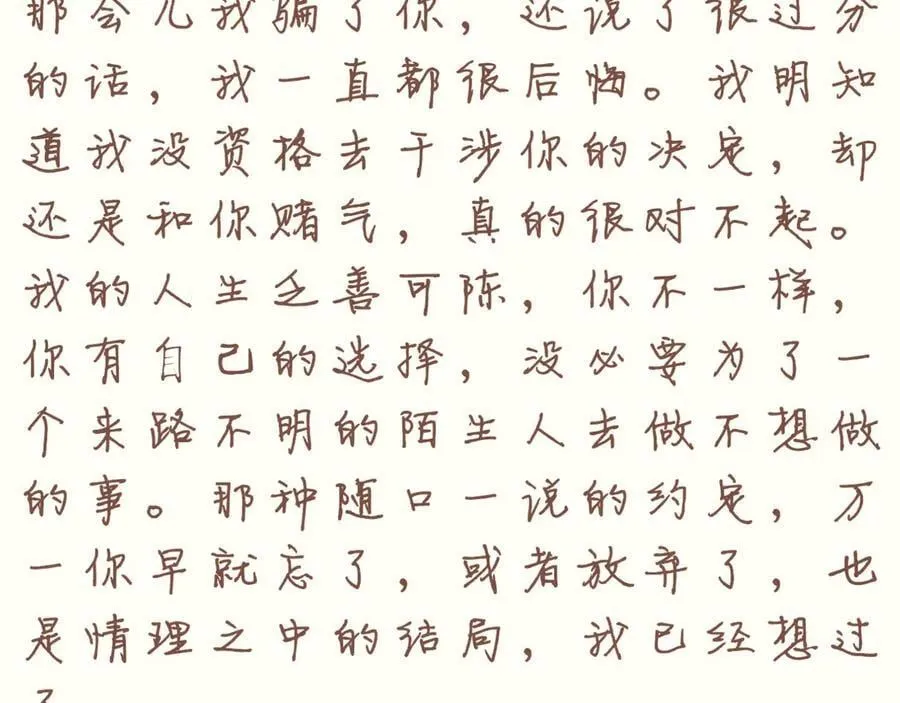 那会儿我骗了你，还说了很过分
的话，我一直都很后悔。我明知
道我没资格去干涉你的决定，却
还是和你赌气，真的很对不起。
我的人生乏善可陈，你不一样，
你有自己的选择，没必要为了一
个来路不明的陌生人去做不想做
的事。那种随口一说的约定，万
一你早就忘了，或者放弃了，也
是情理之中的结局，我已经想过